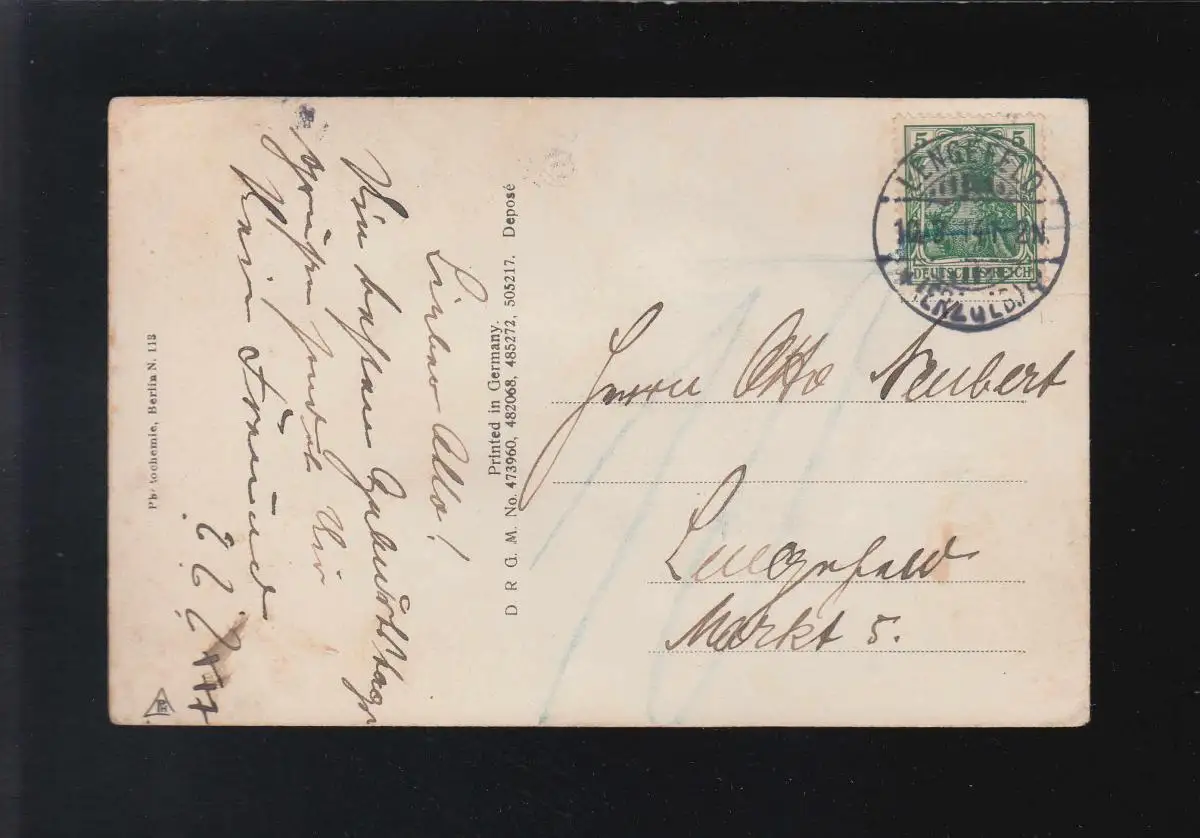 Lieber Otto!
Die besten Geburtstags
grüßen sendet Dir
Dein Freund
? ? ?
Photochemie, Berlin N. 113
Printed in Germany.
D R G. M. No. 473960, 482068, 485272, 505217. Deposé
5 5
DEUTSCHES REICH
LENGEFELD
2N.
(ERZGEB.)
Herrn Otto Neubert
Lengefeld
Markt 5.